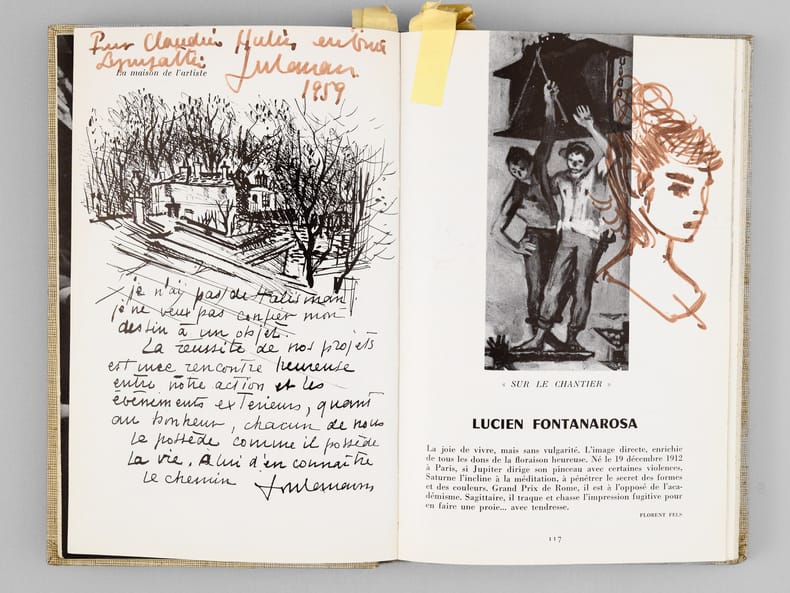 Pour Claudie
La maison de l'artiste
1959
je n'ai pas de talisman
je ne veux pas confier mon
destin à un objet.
La réussite de nos projets
est une rencontre heureuse
entre notre action et les
évènements extérieurs, quant
au bonheur, chacun de nous
le possède comme il possède
la vie. A lui d'en connaître
le chemin
« SUR LE CHANTIER »
LUCIEN FONTANAROSA
La joie de vivre, mais sans vulgarité. L'image directe, enrichie
de tous les dons de la floraison heureuse. Né le 19 décembre 1912
à Paris, si Jupiter dirige son pinceau avec certaines violences,
Saturne l'incline à la méditation, à pénétrer le secret des formes
et des couleurs. Grand Prix de Rome, il est à l'opposé de l'aca-
démisme. Sagittaire, il traque et chasse l'impression fugitive pour
en faire une proie... avec tendresse.
FLORENT FELS
117